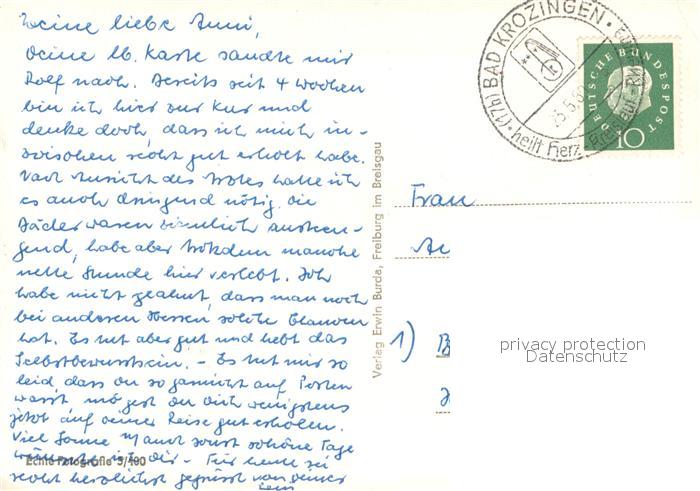 Meine liebe Anni,
Deine lb. Karte sandte mir
Rolf nach. Bereits seit 4 Wochen
bin ich hier zur Kur und
denke doch, dass ich mich in-
zwischen recht gut erholt habe.
Nach Ansicht des Arztes hatte ich
es auch dringend nötig. Die
Bäder waren ziemlich anstren-
gend, habe aber trotzdem manche
nette Stunde hier verlebt. Ich
habe nicht geahnt, dass man noch
bei anderen Herren solche Chancen
hat. Es tut aber gut und hebt das
Selbstbewusstsein. - Es tut mir so
leid, dass du so gesundheitlich auf Posten
warst, mögest du dich wenigstens
jetzt auf deiner Reise gut erholen.
Viel Sonne und sonst schöne Tage
wünsche ich dir - Für heute sei
recht herzlichst gegrüsst von deiner
Echte Fotografie 5/400
Verlag Erwin Burda, Freiburg im Breisgau
(17b) BAD KROZINGEN
heilt Herz
25.5.60
DEUTSCHE BUNDESPOST
10
Frau
1) B
privacy protection
Datenschutz